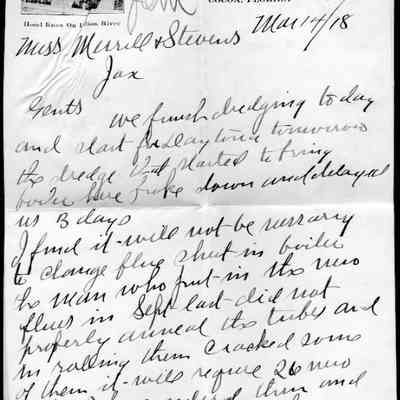 Hotel Knox On Indian River
COCOA, FLORIDA
Mar 14/18
Mess Merrill & Stevens
Jax
Gents we finish dredging today
and start for Daytona tomorrow
the dredge started to bring
boiler have broke down and delayed
us 3 days
I find it will not be nessarry
to change flue sheet in boiler
the man who put in the new
flues in Sept last did not
properly anneal the tubes and
in rolling them cracked some
of them it will require 26 new
them and